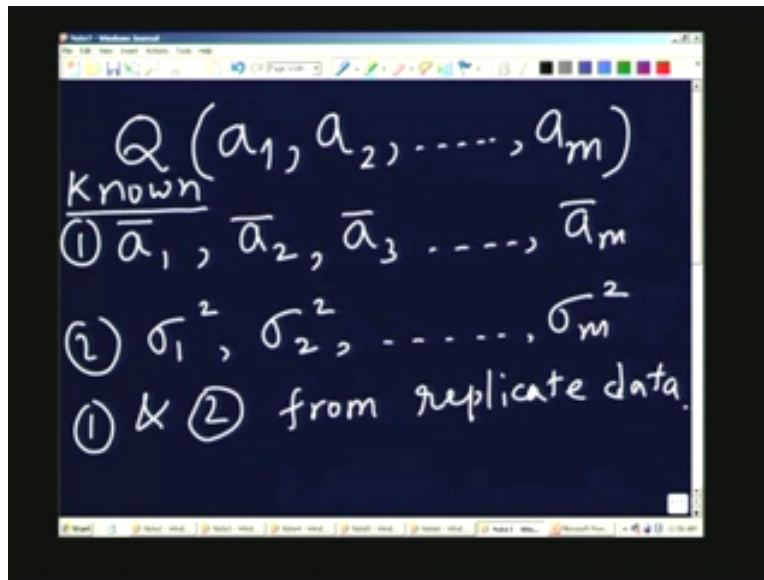 Note7 - Windows Journal
File Edit View Insert Actions Tools Help
Page Width
Q (a₁, a₂, ....., aₘ)
Known
① a̅₁, a̅₂, a̅₃ ....., a̅ₘ
② σ₁², σ₂², ......, σₘ²
① & ② from replicate data.
Start